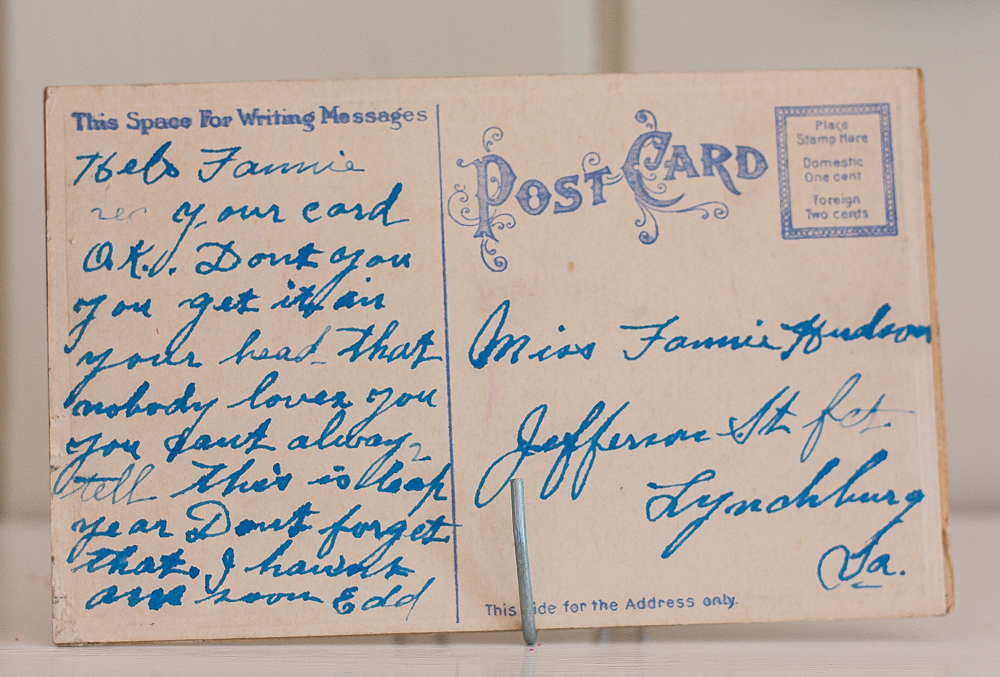 This Space For Writing Messages
Helo Fannie
rec your card
O.K. Dont you
you get it in
your head that
nobody loves you
you cant always
tell this is leap
year Dont forget
that. I havent
soon Edd
POST CARD
Place
Stamp Here
Domestic
One cent
Foreign
Two cents
Miss Fannie Hudson
Jefferson St
Lynchburg
Va.
This Side for the Address only.